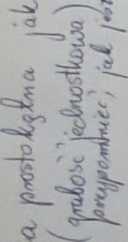 a prostokątna jak
(grubość jednostkowa)
przypomnieć, jak jest